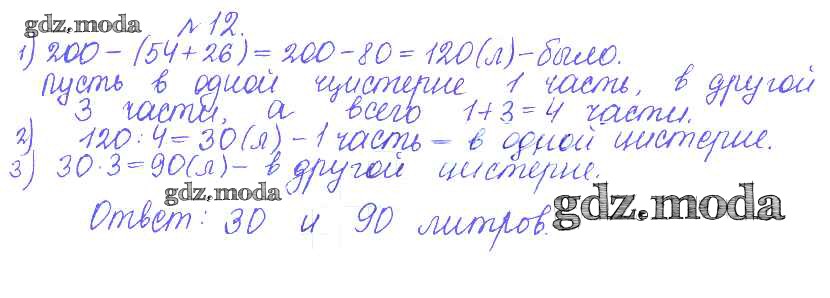 gdz.moda № 12.
1) 200 - (54 + 26) = 200 - 80 = 120 (л) - было.
Пусть в одной цистерне 1 часть, в другой
3 части, а всего 1 + 3 = 4 части.
2) 120 : 4 = 30 (л) - 1 часть - в одной цистерне.
3) 30 · 3 = 90 (л) - в другой цистерне.
gdz.moda
Ответ: 30 и 90 литров.
gdz.moda